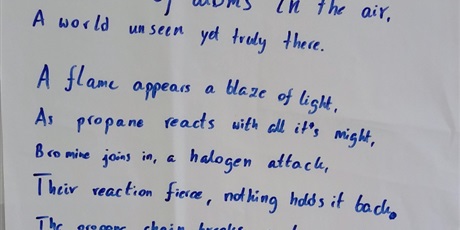 in the air,
A world unseen yet truly there.
A flame appears a blaze of light,
As propane reacts with all it's might,
Bromine joins in, a halogen attack,
Their reaction fierce, nothing holds it back.
The propane chain breaks